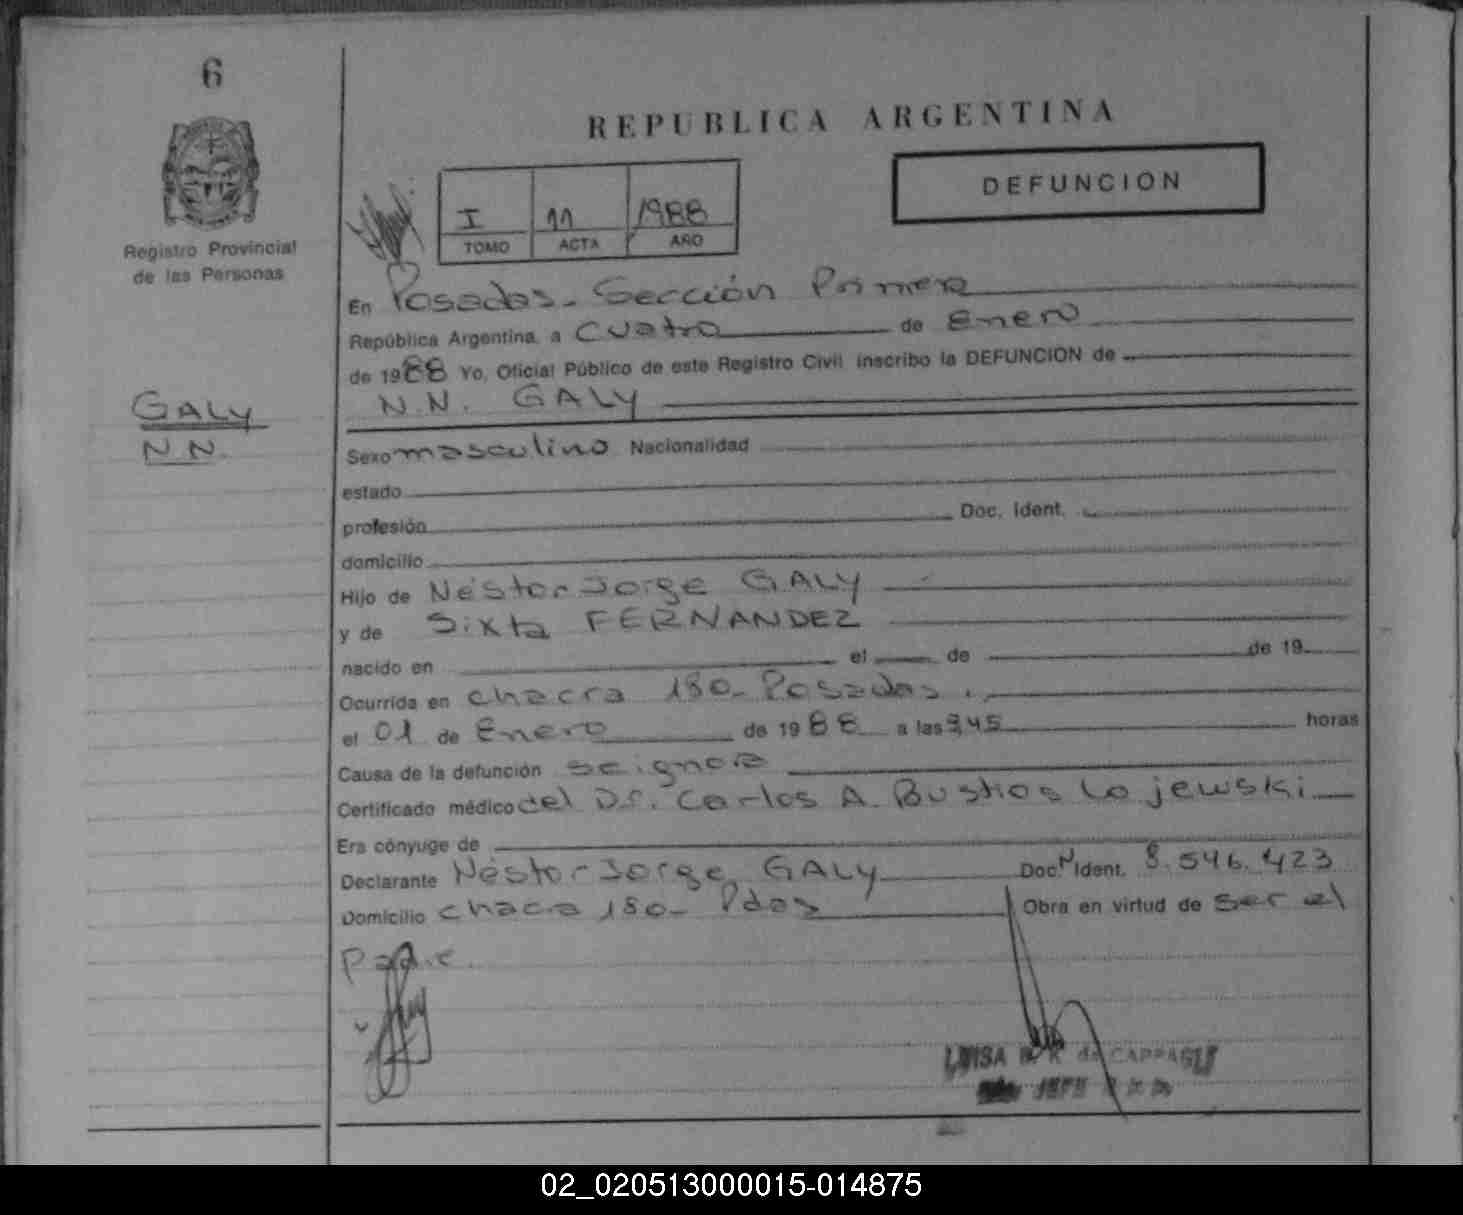 6
Registro Provincial
de las Personas
GALY
N N.
REPUBLICA ARGENTINA
DEFUNCION
I 11 1988
TOMO ACTA AÑO
En Posadas - Sección Primera
República Argentina, a cuatro de Enero
de 1988 Yo, Oficial Público de este Registro Civil inscribo la DEFUNCION de
N.N. GALY
Sexo masculino Nacionalidad
estado
profesión Doc. Ident.
domicilio
Hijo de Néstor Jorge GALY
y de Sixta FERNANDEZ
nacido en el de de 19
Ocurrida en chacra 180 - Posadas.
el 01 de Enero de 1988 a las 9,45 horas
Causa de la defunción se ignora
Certificado médico del Dr. Carlos A. Bustos Lojewski
Era cónyuge de
Declarante Néstor Jorge GALY Doc. N Ident. 8.546.423
Domicilio chacra 180 - Pdas Obra en virtud de ser el
Padre.
LUISA de CAPPAGLI
JEFE
02_020513000015-014875